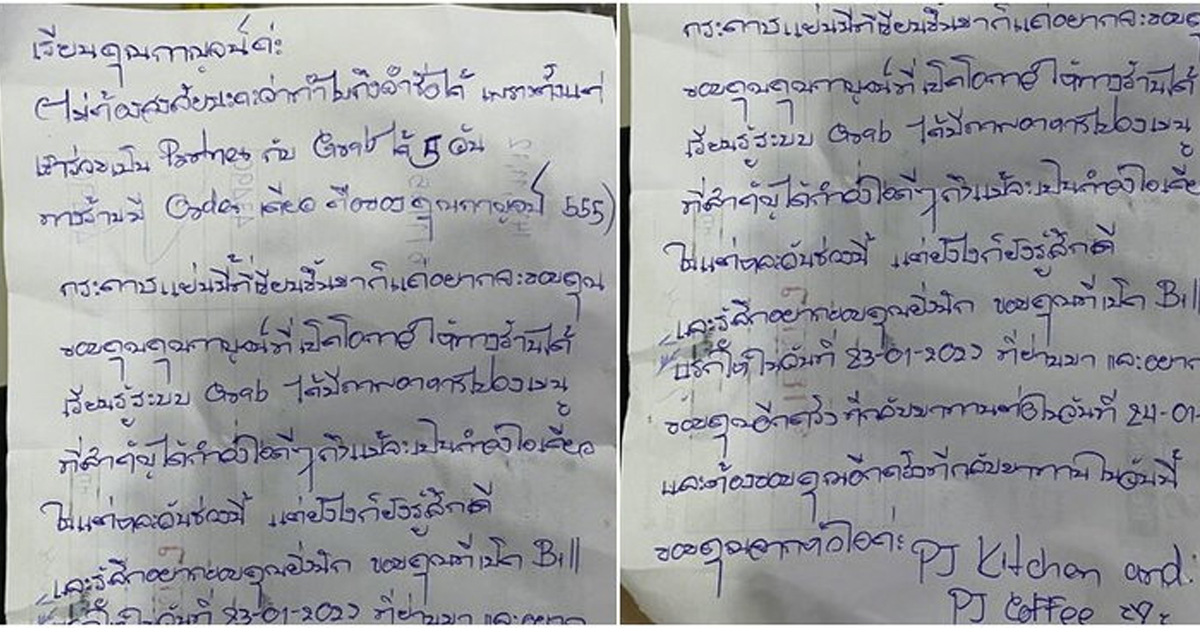 เรียนคุณกาญจน์ค่ะ
(ไม่ต้องสงสัยนะคะว่าทำไมถึงจำชื่อได้ เพราะตั้งแต่
เข้าร่วมเป็น Partner กับ Grab ได้ 5 วัน
ทางร้านมี Order เดียว คือของคุณกาญจน์ 555)
กระดาษแผ่นนี้ที่เขียนขึ้นมาก็แค่อยากจะขอบคุณ
ขอบคุณคุณกาญจน์ที่เปิดโอกาส ให้ทางร้านได้
เรียนรู้ระบบ Grab ได้มีภาพอาหารไปลงเมนู
ที่สำคัญได้กำลังใจดีๆ ถึงแม้จะเป็นกำลังใจเดียว
ในแต่ละวันช่วงนี้ แต่ยังไงก็ยังรู้สึกดี
และรู้สึกอยากขอบคุณยิ่งนัก ขอบคุณที่เปิด Bill
แรกให้ในวันที่ 23-01-2022 ที่ผ่านมา และอยาก
กระดาษแผ่นนี้ที่เขียนขึ้นมาก็แค่อยากจะขอบคุ
ขอบคุณคุณกาญจน์ที่เปิดโอกาส ให้ทางร้านได้
เรียนรู้ระบบ Grab ได้มีภาพอาหารไปลงเมนู
ที่สำคัญได้กำลังใจดีๆ ถึงแม้จะเป็นกำลังใจเดีย
ในแต่ละวันช่วงนี้ แต่ยังไงก็ยังรู้สึกดี
และรู้สึกอยากขอบคุณยิ่งนัก ขอบคุณที่เปิด Bill
แรกให้ในวันที่ 23-01-2022 ที่ผ่านมา และอยาก
ขอบคุณอีกครั้ง ที่กลับมาทานต่อในวันที่ 24-01-
และต้องขอบคุณอีกครั้งที่กลับมาทานในวันนี้
ขอบคุณจากหัวใจค่ะ PJ Kitchen and
PJ Coffee